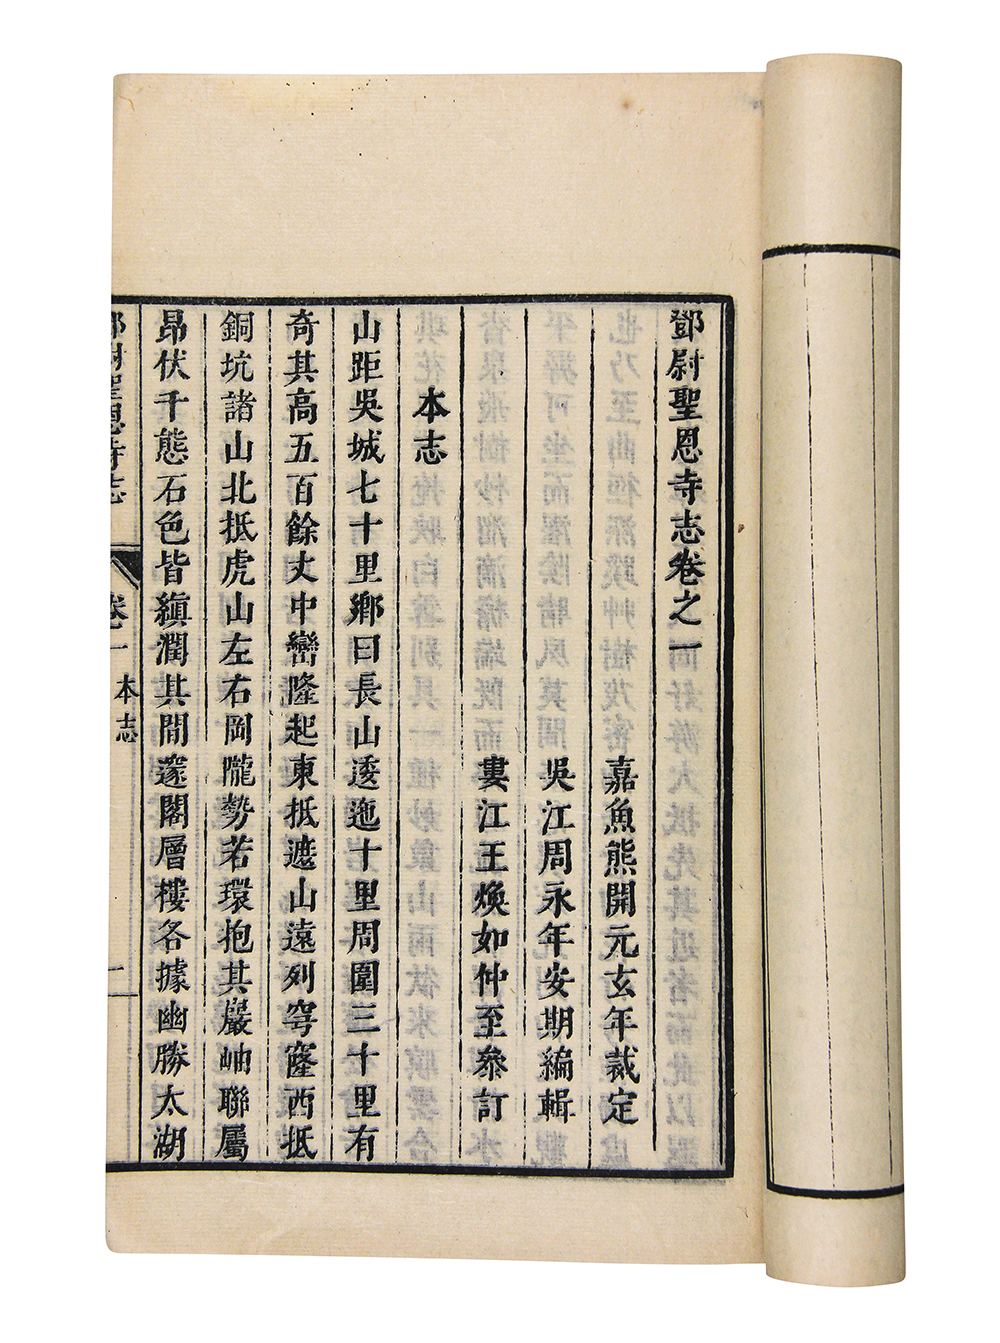 鄧尉聖恩寺志卷之一
嘉魚熊開元玄年裁定
吳江周永年安期編輯
婁江王煥如仲至叅訂
本志
山距吳城七十里鄉曰長山逶迤十里周圍三十里有
奇其高五百餘丈中巒隆起東抵遮山遠列穹窿西抵
銅坑諸山北抵虎山左右岡隴勢若環抱其巖岫聯屬
昂伏千態石色皆縝潤其間邃閣層樓各據幽勝太湖
鄧尉聖恩寺志 卷一 本志 一